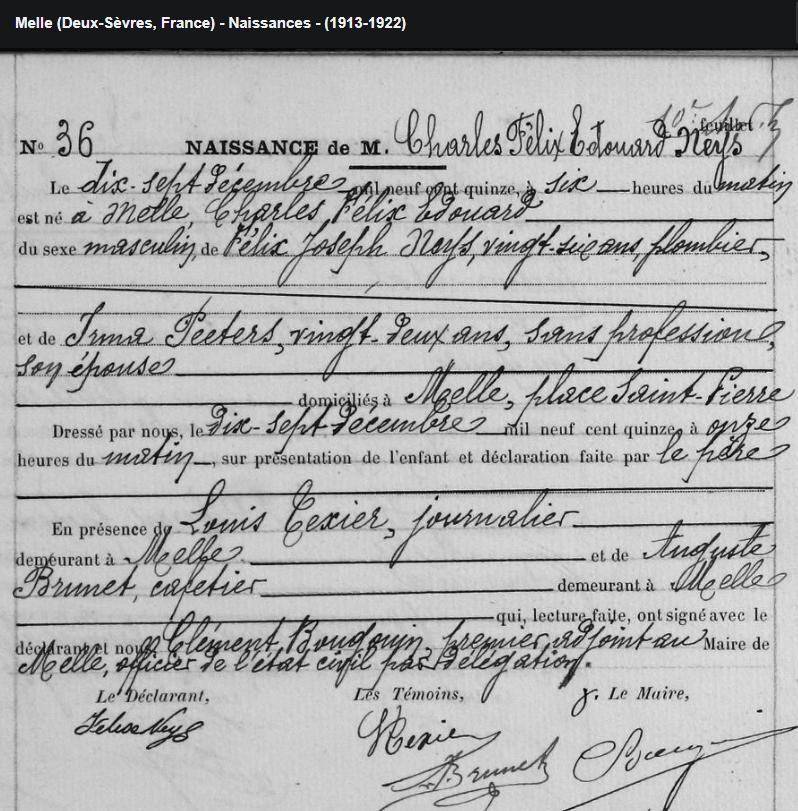 Melle (Deux-Sèvres, France) - Naissances - (1913-1922)
feuillet
N° 36 NAISSANCE de M. Charles Félix Edouard Neyß
Le dix-sept Décembre mil neuf cent quinze, à six heures du matin
est né à Melle, Charles Félix Edouard
du sexe masculin, de Félix Joseph Neyß, vingt-six ans, plombier,
et de Irma Peeters, vingt-deux ans, sans profession,
son épouse
domiciliés à Melle, place Saint-Pierre
Dressé par nous, le Dix-sept Décembre mil neuf cent quinze, à onze
heures du matin, sur présentation de l'enfant et déclaration faite par le père
En présence de Louis Texier, journalier
demeurant à Melle et de Auguste
Brunet, cafetier demeurant à Melle
qui, lecture faite, ont signé avec le
déclarant et nous, Clément Beudouin, premier adjoint au Maire de
Melle, officier de l'état civil par Délégation.
Le Déclarant, Les Témoins, Le Maire,
Texier
Brunet